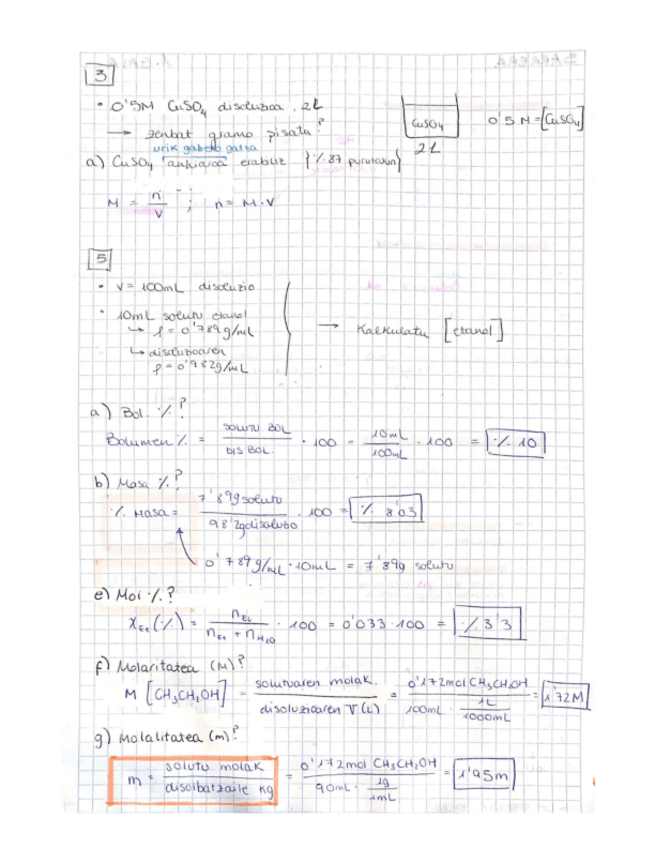 3
• 0'5M CuSO4 disoluzioa. 2L
CuSO4
0'5M=[CuSO4]
→ zenbat gramo pisatu?
2L
urik gabeko gatza
a) CuSO4 anhidroa erabiliz {%87 purutasun}
M = n/V ; n = M·V
5
• V = 100mL disoluzio
• 10mL solutu etanol
↳ ρ = 0'789g/mL
→ Kalkulatu [etanol]
↳ disoluzioaren
ρ = 0'982g/mL
a) Bol. %?
Bolumen % = SOLUTU BOL / DIS BOL. · 100 = 10mL / 100mL · 100 = % 10
b) Masa %?
% MASA = 7'89g solutu / 98'2g disoluzio · 100 = % 8'03
0'789g/mL · 10mL = 7'89g solutu
e) Mol %?
XEt (%) = nEt / nEt + nH2O · 100 = 0'033 · 100 = % 3'3
f) Molaritatea (M)?
M [CH3CH2OH] = solutuaren molak. / disoluzioaren V(L) = 0'172mol CH3CH2OH / 100mL · 1L / 1000mL = 1'72M
g) Molalitatea (m)?
m = solutu molak / disolbatzaile kg = 0'172mol CH3CH2OH / 90mL · 1g / 1mL = 1'95m